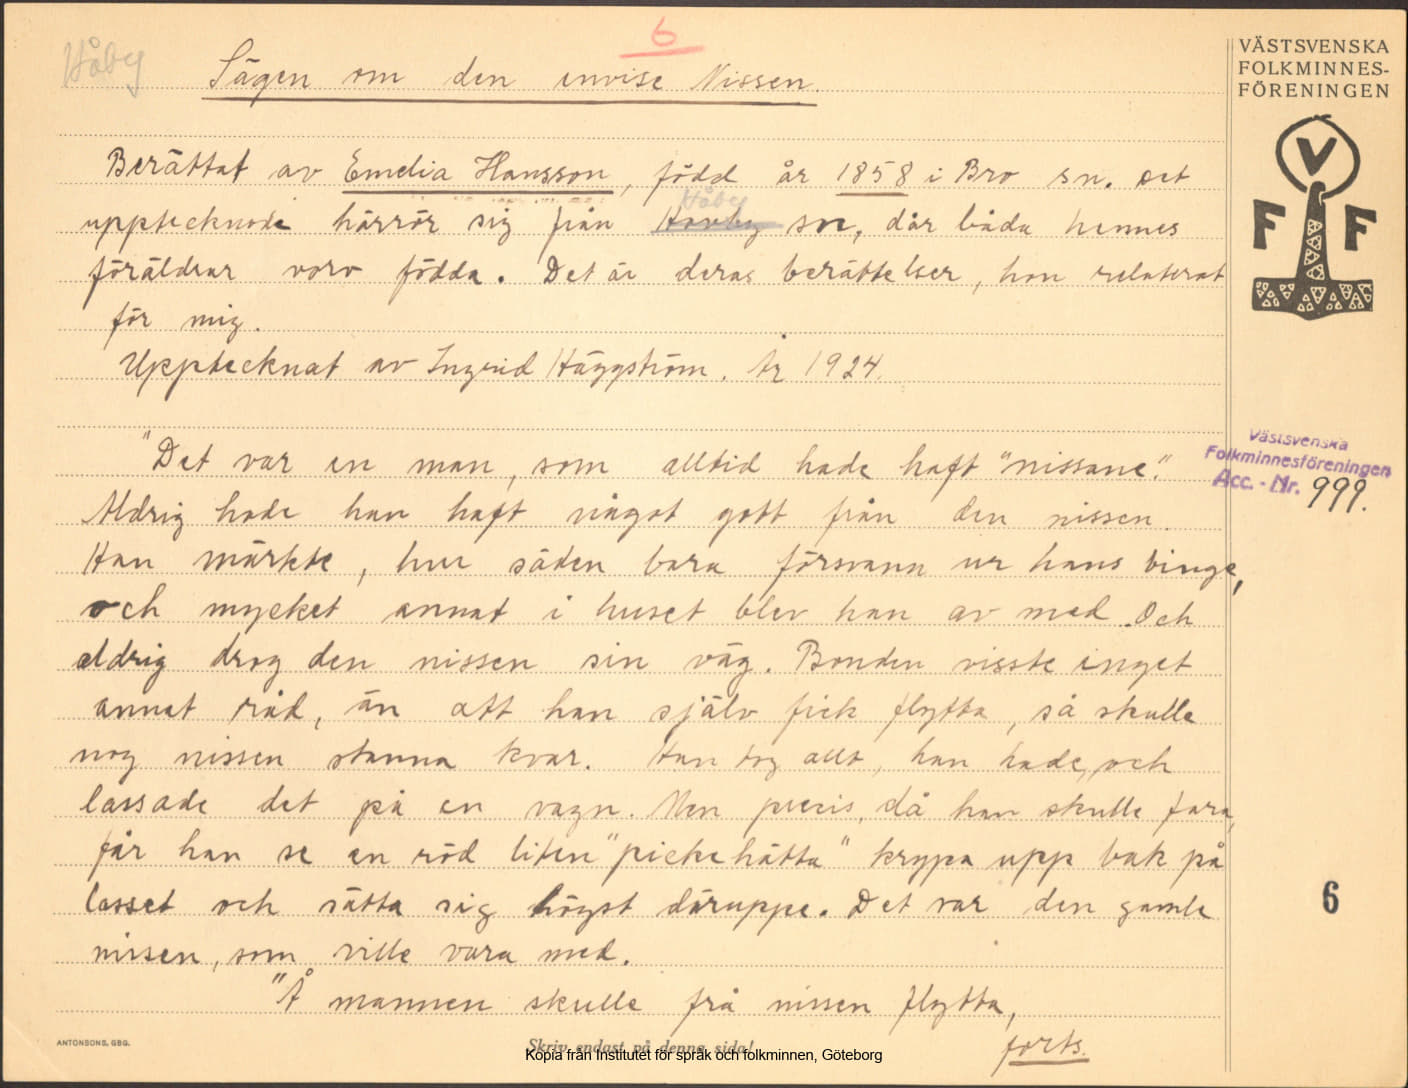 6
Håby
Sägen om den envise Nissen.
VÄSTSVENSKA
FOLKMINNES-
FÖRENINGEN
V
F F
Berättat av Emelia Hansson, född år 1858 i Bro sn. Det
Håby
upptecknade härrör sig från sn, där båda hennes
föräldrar voro födda. Det är deras berättelser, hon relaterat
för mig.
Upptecknat av Ingrid Häggström. År 1924.
"Det var en man, som alltid hade haft "nissane".
Västsvenska
Folkminnesföreningen
Acc. - Nr. 999.
Aldrig hade han haft något gott från den nissen.
Han märkte, hur säden bara försvann ur hans binge,
och mycket annat i huset blev han av med. Och
aldrig drog den nissen sin väg. Bonden visste inget
annat råd, än att han själv fick flytta, så skulle
nog nissen stanna kvar. Han tog allt, han hade, och
lassade det på en vagn. Men precis, då han skulle fara,
får han se en röd liten "pickehätta" krypa upp bak på
lasset och sätta sig högst däruppe. Det var den gamle
nissen, som ville vara med.
6
"Å mannen skulle frå nissen flytta,
forts.
ANTONSONS, GBG.
Skriv endast på denna sida!
Kopia från Institutet för språk och folkminnen, Göteborg